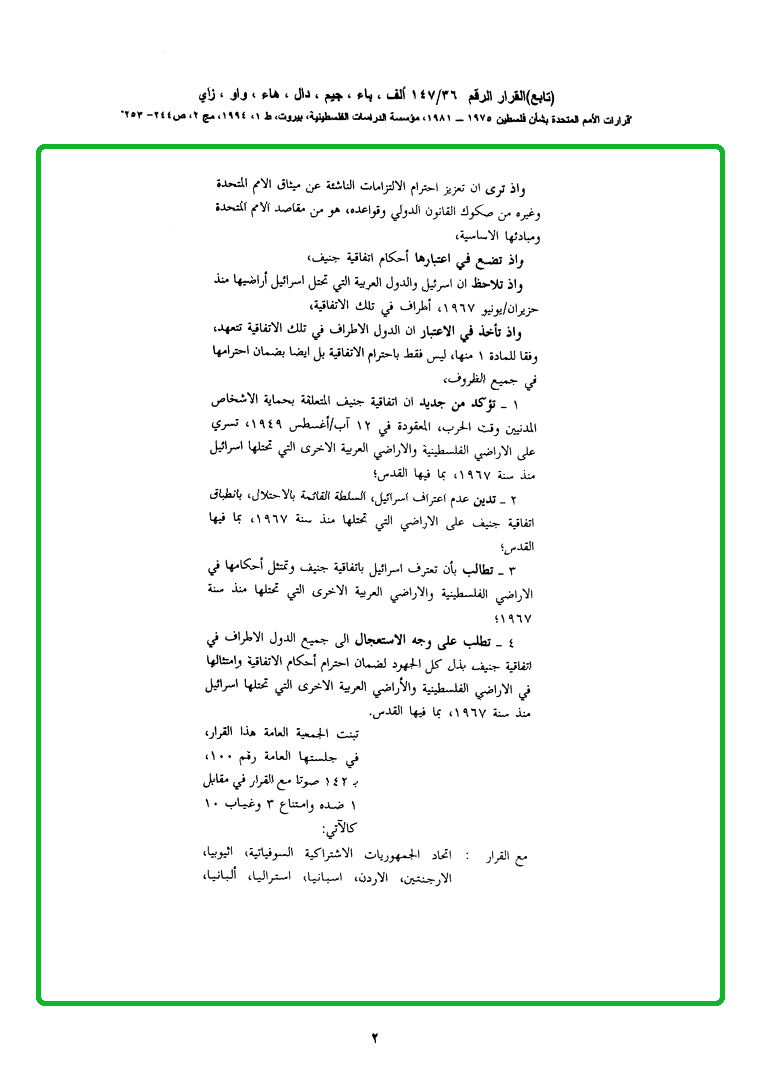 (تابع)القرار الرقم ١٤٧/٣٦ ألف ، باء ، جيم ، دال ، هاء ، واو ، زاي
"قرارات الأمم المتحدة بشأن فلسطين ١٩٧٥ – ١٩٨١، مؤسسة الدراسات الفلسطينية، بيروت، ط ١، ١٩٩٤، مج ٢، ص٢٤٤- ٢٥٣"
واذ ترى ان تعزيز احترام الالتزامات الناشئة عن ميثاق الامم المتحدة
وغيره من صكوك القانون الدولي وقواعده، هو من مقاصد الامم المتحدة
ومبادئها الاساسية،
واذ تضع في اعتبارها أحكام اتفاقية جنيف،
واذ تلاحظ ان اسرئيل والدول العربية التي تحتل اسرائيل أراضيها منذ
حزيران/يونيو ١٩٦٧، أطراف في تلك الاتفاقية،
واذ تأخذ في الاعتبار ان الدول الاطراف في تلك الاتفاقية تتعهد،
وفقا للمادة ١ منها، ليس فقط باحترام الاتفاقية بل ايضا بضمان احترامها
في جميع الظروف،
١ ـ تؤكد من جديد ان اتفاقية جنيف المتعلقة بحماية الاشخاص
المدنيين وقت الحرب، المعقودة في ١٢ آب/أغسطس ١٩٤٩، تسري
على الاراضي الفلسطينية والاراضي العربية الاخرى التي تحتلها اسرائيل
منذ سنة ١٩٦٧، بما فيها القدس؛
٢ ـ تدين عدم اعتراف اسرائيل، السلطة القائمة بالاحتلال، بانطباق
اتفاقية جنيف على الاراضي التي تحتلها منذ سنة ١٩٦٧، بما فيها
القدس؛
٣ ـ تطالب بأن تعترف اسرائيل باتفاقية جنيف وتمتثل أحكامها في
الاراضي الفلسطينية والاراضي العربية الاخرى التي تحتلها منذ سنة
١٩٦٧؛
٤ ـ تطلب على وجه الاستعجال الى جميع الدول الاطراف في
اتفاقية جنيف بذل كل الجهود لضمان احترام أحكام الاتفاقية وامتثالها
في الاراضي الفلسطينية والأراضي العربية الاخرى التي تحتلها اسرائيل
منذ سنة ١٩٦٧، بما فيها القدس.
تبنت الجمعية العامة هذا القرار،
في جلستها العامة رقم ١٠٠،
بـ ١٤٢ صوتا مع القرار في مقابل
١ ضده وامتناع ٣ وغياب ١٠
كالآتي:
مع القرار : اتحاد الجمهوريات الاشتراكية السوفياتية، اثيوبيا،
الارجنتين، الاردن، اسبانيا، استراليا، ألبانيا،
٢